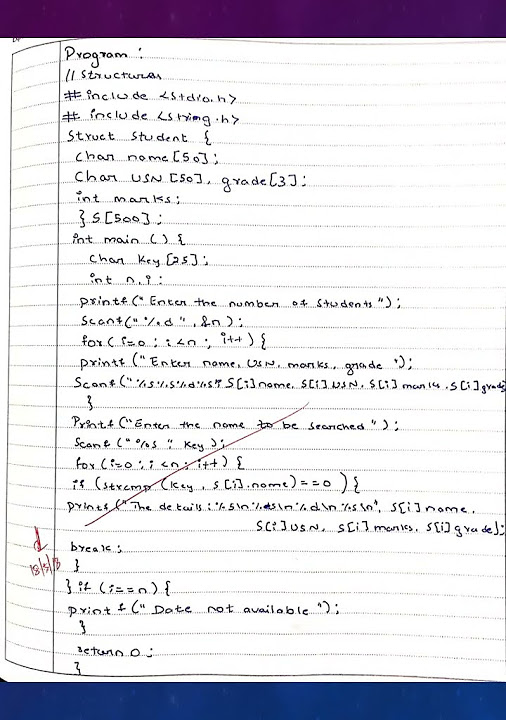 Program :
// Structures
# include <stdio.h>
# include <string.h>
Struct Student {
Char name [50] ;
Char USN [50], grade[3] ;
int marks ;
} S [500] ;
int main () {
Char Key [25] ;
int n, i ;
printf (" Enter the number of Students ") ;
Scanf (" %d " , &n) ;
for ( i=0 ; i <n ; i++ ) {
printf (" Enter name, USN, marks, grade ") ;
Scanf (" %s%s%d%s" S[i]name, S[i].USN, S[i] marks, S[i] grade
}
Printf ("Enter the name to be searched ") ;
Scanf (" %s ", Key ) ;
for ( i=0 ; i <n ; i++ ) {
if ( Strcmp (Key , S [i] .name) == 0 ) {
printf (" The details : %s\n %s\n %d\n %s\n", S[i] name,
S[i] USN, S[i] marks, S[i] grade] ;
break ;
}
} if ( i == n ) {
print f (" Date not available ") ;
}
return 0 ;
}